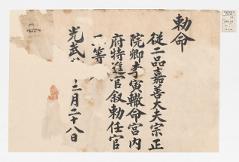 勅命
從二品嘉善大夫宗正
院卿李寅轍命宮內
府特進官敘勅任官
一等
光武六
三月二十八日